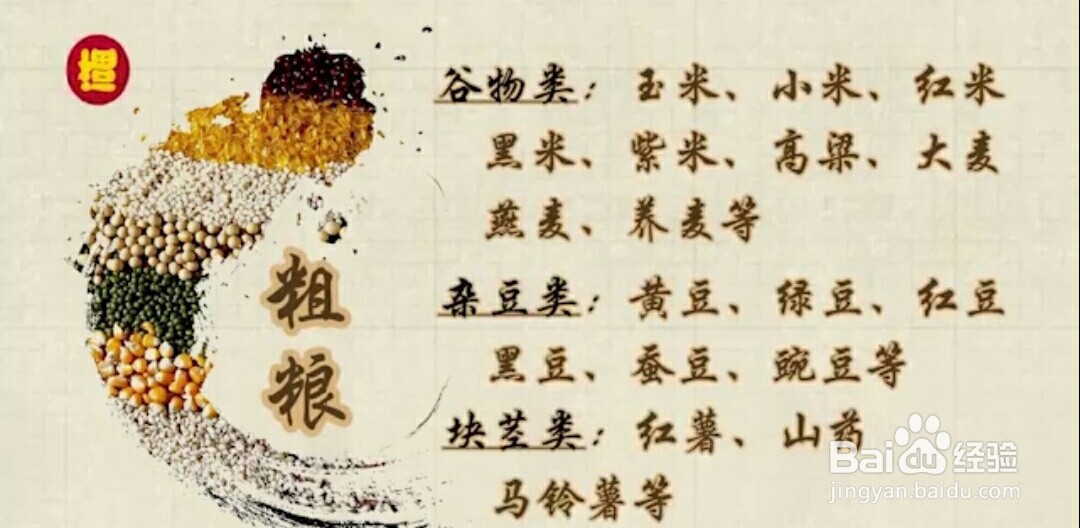 粗粮
谷物类：玉米、小米、红米
黑米、紫米、高粱、大麦
燕麦、荞麦等
杂豆类：黄豆、绿豆、红豆
黑豆、蚕豆、豌豆等
块茎类：红薯、山药
马铃薯等
Baidu经验
jingyan.baidu.com